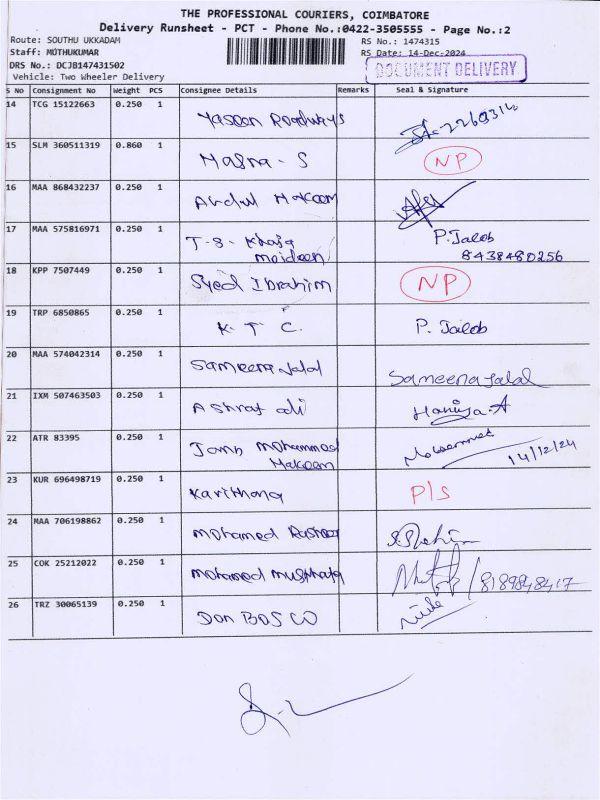 THE PROFESSIONAL COURIERS, COIMBATORE
Delivery Runsheet - PCT - Phone No.:0422-3505555 - Page No.:2
Route: SOUTHU UKKADAM
RS No.: 1474315
Staff: MUTHUKUMAR
RS Date: 14-Dec-2024
DRS No.: DCJB147431502
DOCUMENT DELIVERY
Vehicle: Two Wheeler Delivery
S No Consignment No Weight PCS Consignee Details Remarks Seal & Signature
14 TCG 15122663 0.250 1 Yaseen Roadways
15 SLM 360511319 0.860 1 Hasna - S NP
16 MAA 868432237 0.250 1 Abdul Hakeem
17 MAA 575816971 0.250 1 T-S- Khaja P. Jaleb
moideen 8438480256
18 KPP 7507449 0.250 1 Syed Ibrahim NP
19 TRP 6850865 0.250 1 K. T C. P. Jaleb
20 MAA 574042314 0.250 1 Sameena Jalal Sameena Jalal
21 IXM 507463503 0.250 1 Ashraf ali Haniya.A
22 ATR 83395 0.250 1 Mohammed
Hakeem 14/12/24
23 KUR 696498719 0.250 1 Karithana P/S
24 MAA 706198862 0.250 1 mohamed Rasheed
25 COK 25212022 0.250 1 mohamed musthafa / 8189848417
26 TRZ 30065139 0.250 1 Don BOSCO